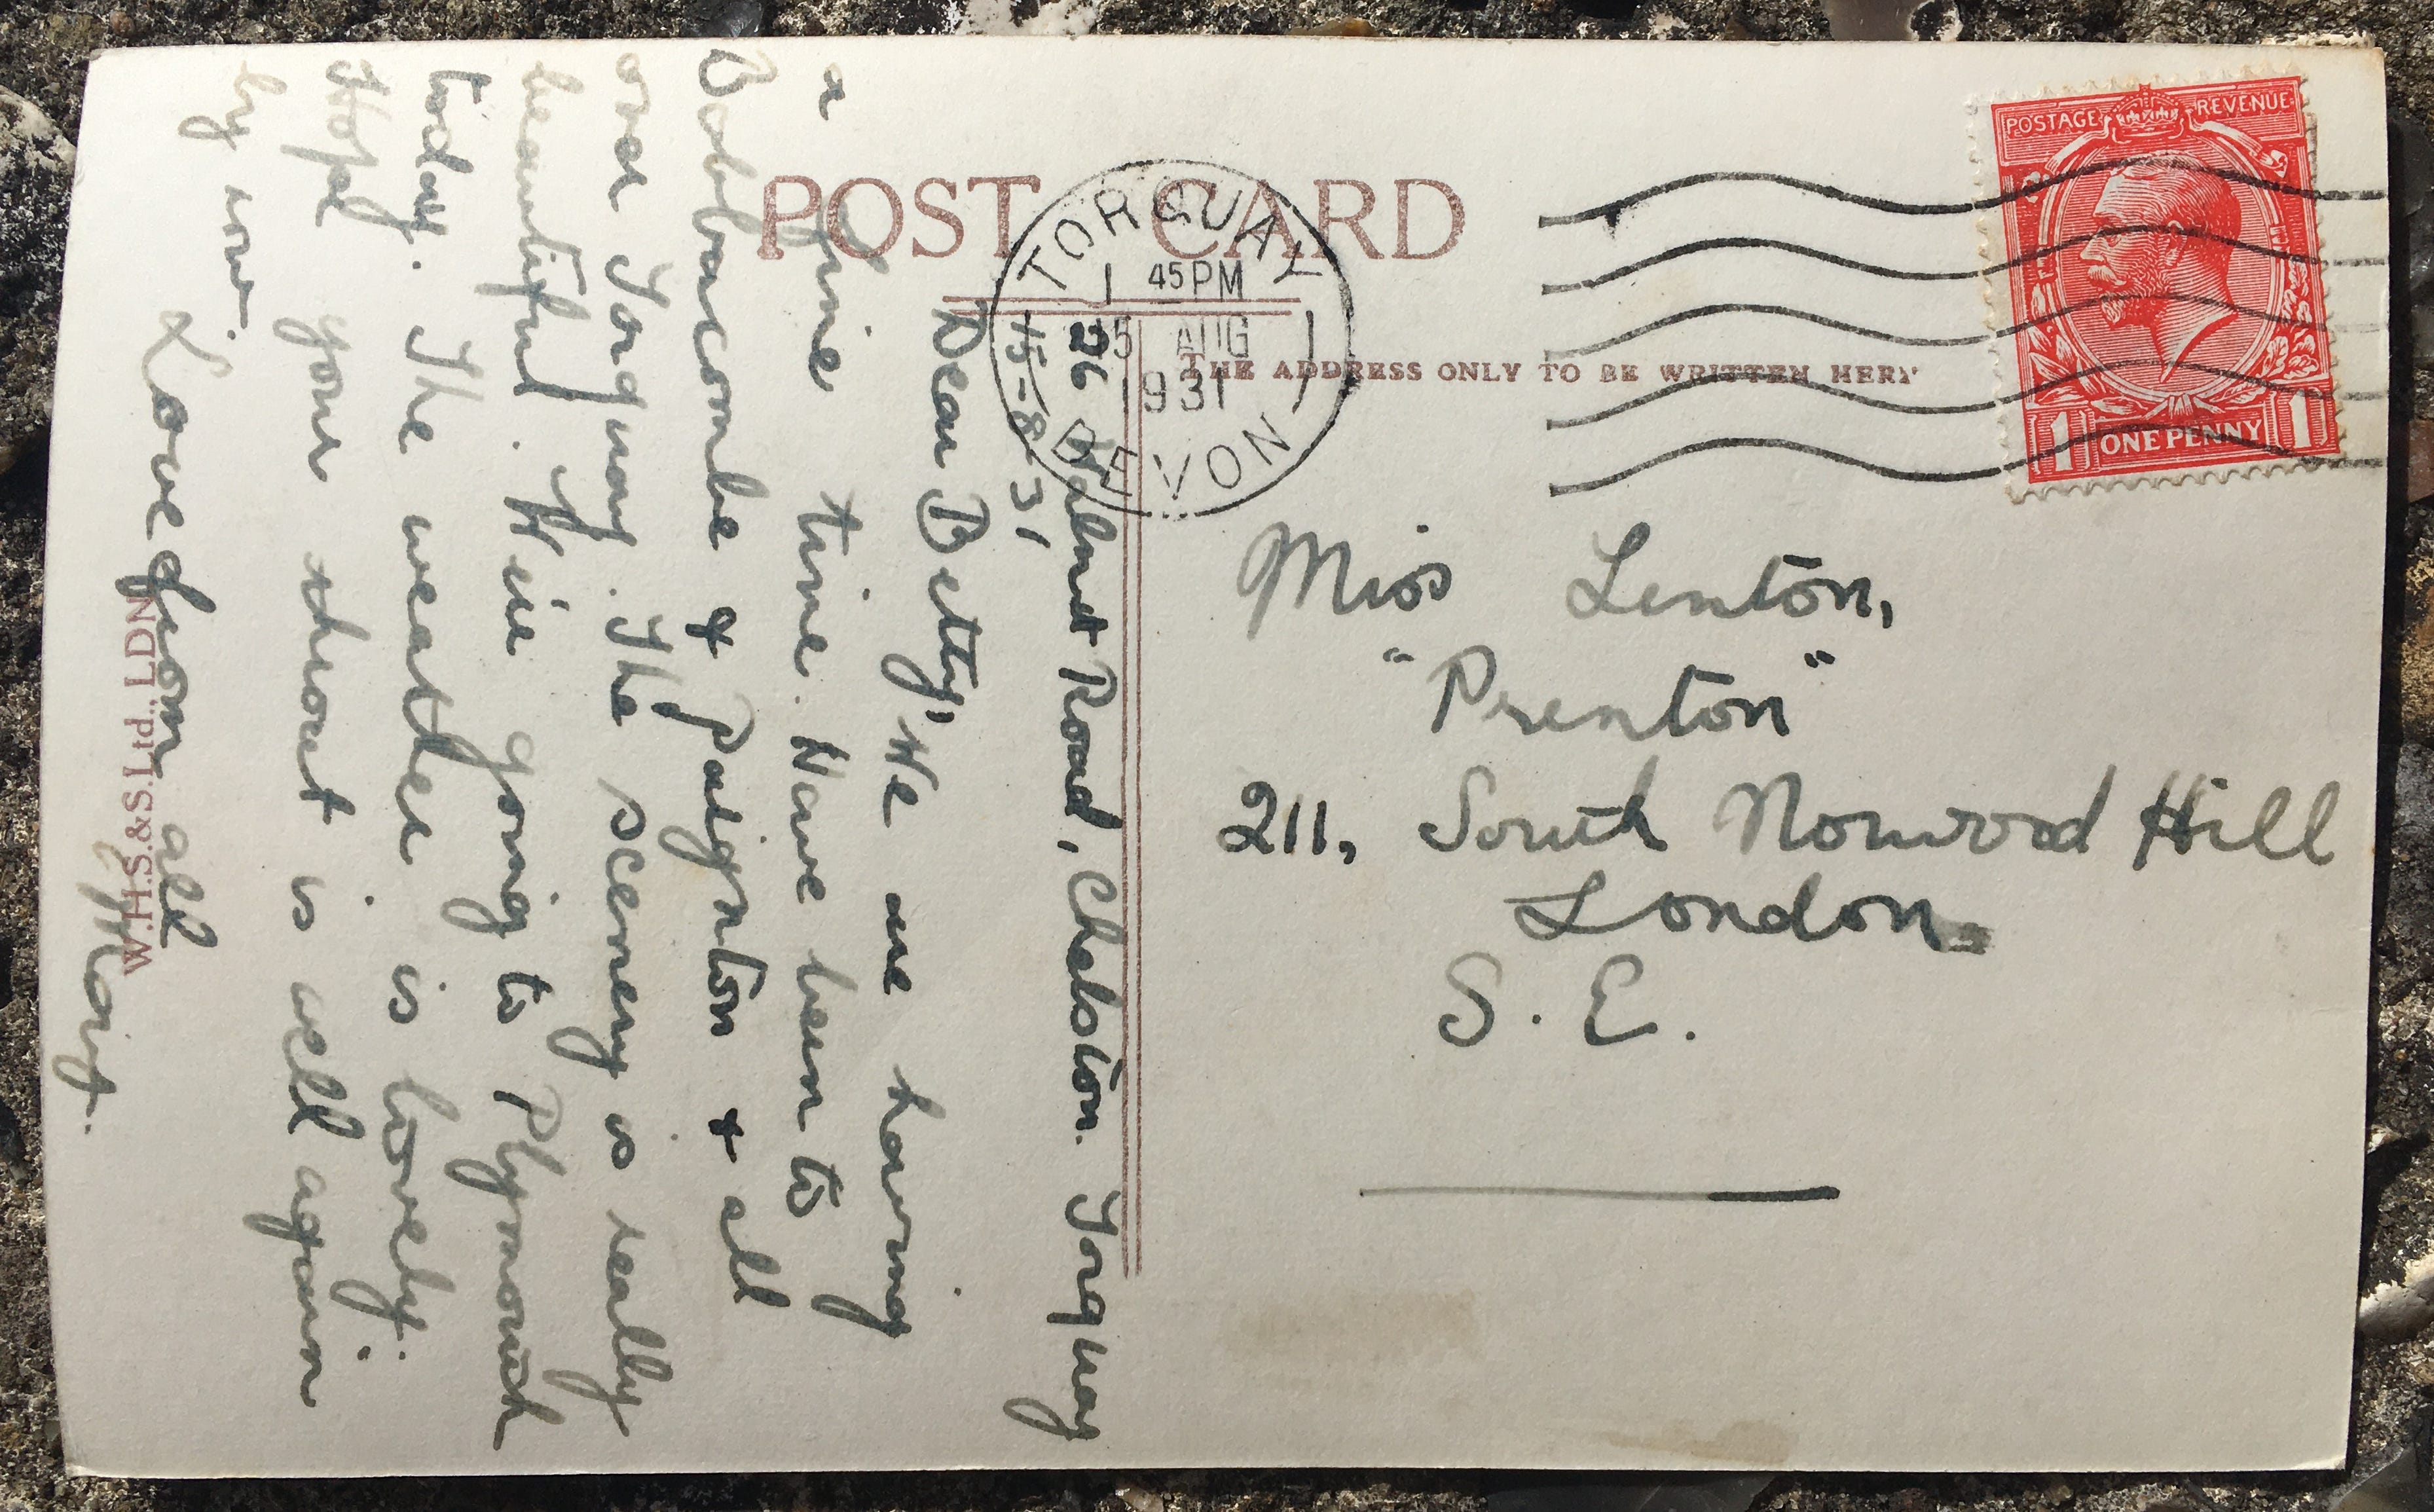 POST CARD
THE ADDRESS ONLY TO BE WRITTEN HERE
POSTAGE REVENUE
1 ONE PENNY 1
TORQUAY
1 45 PM
15 AUG
1931
DEVON
Miss Lenton,
"Prenton"
211, South Norwood Hill
London
S. E.
26 Walnut Road, Chelston. Torquay
15-8-31
Dear Betty,
We are having
a fine time. Have been to
Babbacombe & Paignton & all
over Torquay. The scenery is really
beautiful. We're going to Plymouth
today. The weather is lovely.
Hope your throat is well again
by now.
Love from all
Mary.
W.H.S.&S.Ltd., LDN